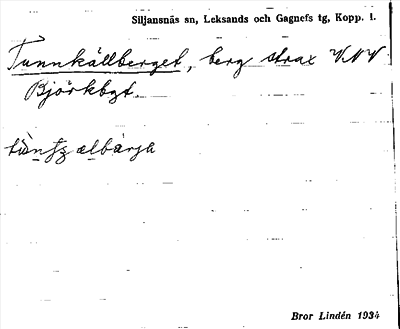 Siljansnäs sn, Leksands och Gagnefs tg, Kopp. l.
Tunnkällberget, berg strax VNV
Björkbgt.
Bror Lindén 1934